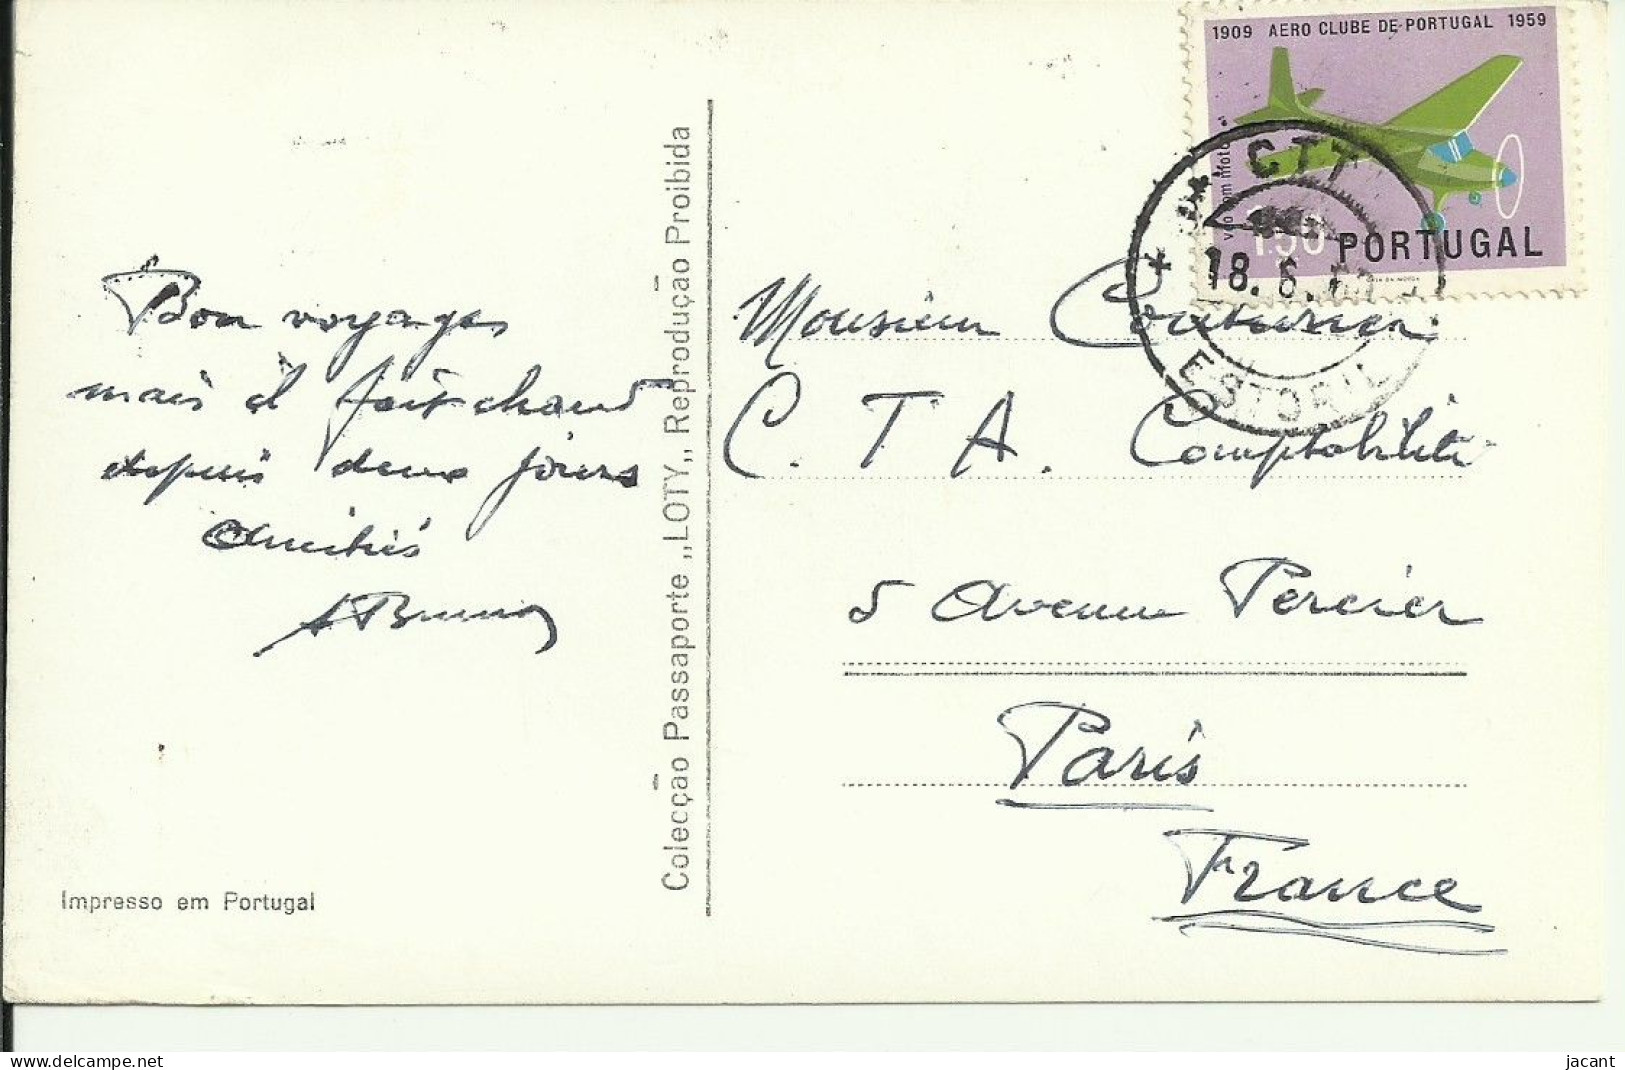 Bon voyages
mais il fait chaud
depuis deux jours
Amitiés
Colecção Passaporte „LOTY„ Reprodução Proibida
Impresso em Portugal
1909 AERO CLUBE DE PORTUGAL 1959
1$50 PORTUGAL
CTT
18.6.
ESTORIL
Monsieur Couturier
C.T.A. Comptabilité
5 Avenue Percier
Paris
France
delcampe.net
jacant